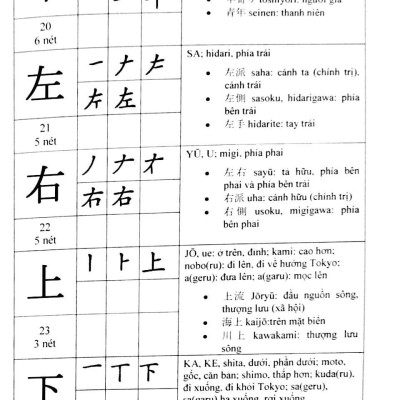 青年 seinen: thanh niên
20
6 nét
左
一 ナ
左
SA; hidari, phía trái
左派 saha: cánh ta (chính trị),
cánh trái
左側 sasoku, hidarigawa: phía
bên trái
左手 hidarite: tay trái
21
5 nét
右
ノ ナ
右 右
YŪ, U; migi, phía phai
左右 sayū: ta hữu, phía bên
phai và phía bên trái
右派 uha: cánh hữu (chính trị)
右側 usoku, migigawa: phía
bên phai
22
5 nét
上
丨 ト 上
JŌ, ue: ở trên, đinh; kami: cao hơn;
nobo(ru): đi lên, đi về hướng Tokyo;
a(geru): đưa lên; a(garu): mọc lên
上流 Jōryū: đầu nguồn sông,
thượng lưu (xã hội)
海上 kaijō:trên mặt biên
川上 kawakami: thượng lưu
sông
23
3 nét
下
一 丁 下
KA, KE, shita, dưới, phần dưới; moto,
gốc, căn bản; shimo, thấp hơn; kuda(ru),
đi xuống, đi khỏi Tokyo; sa(geru),